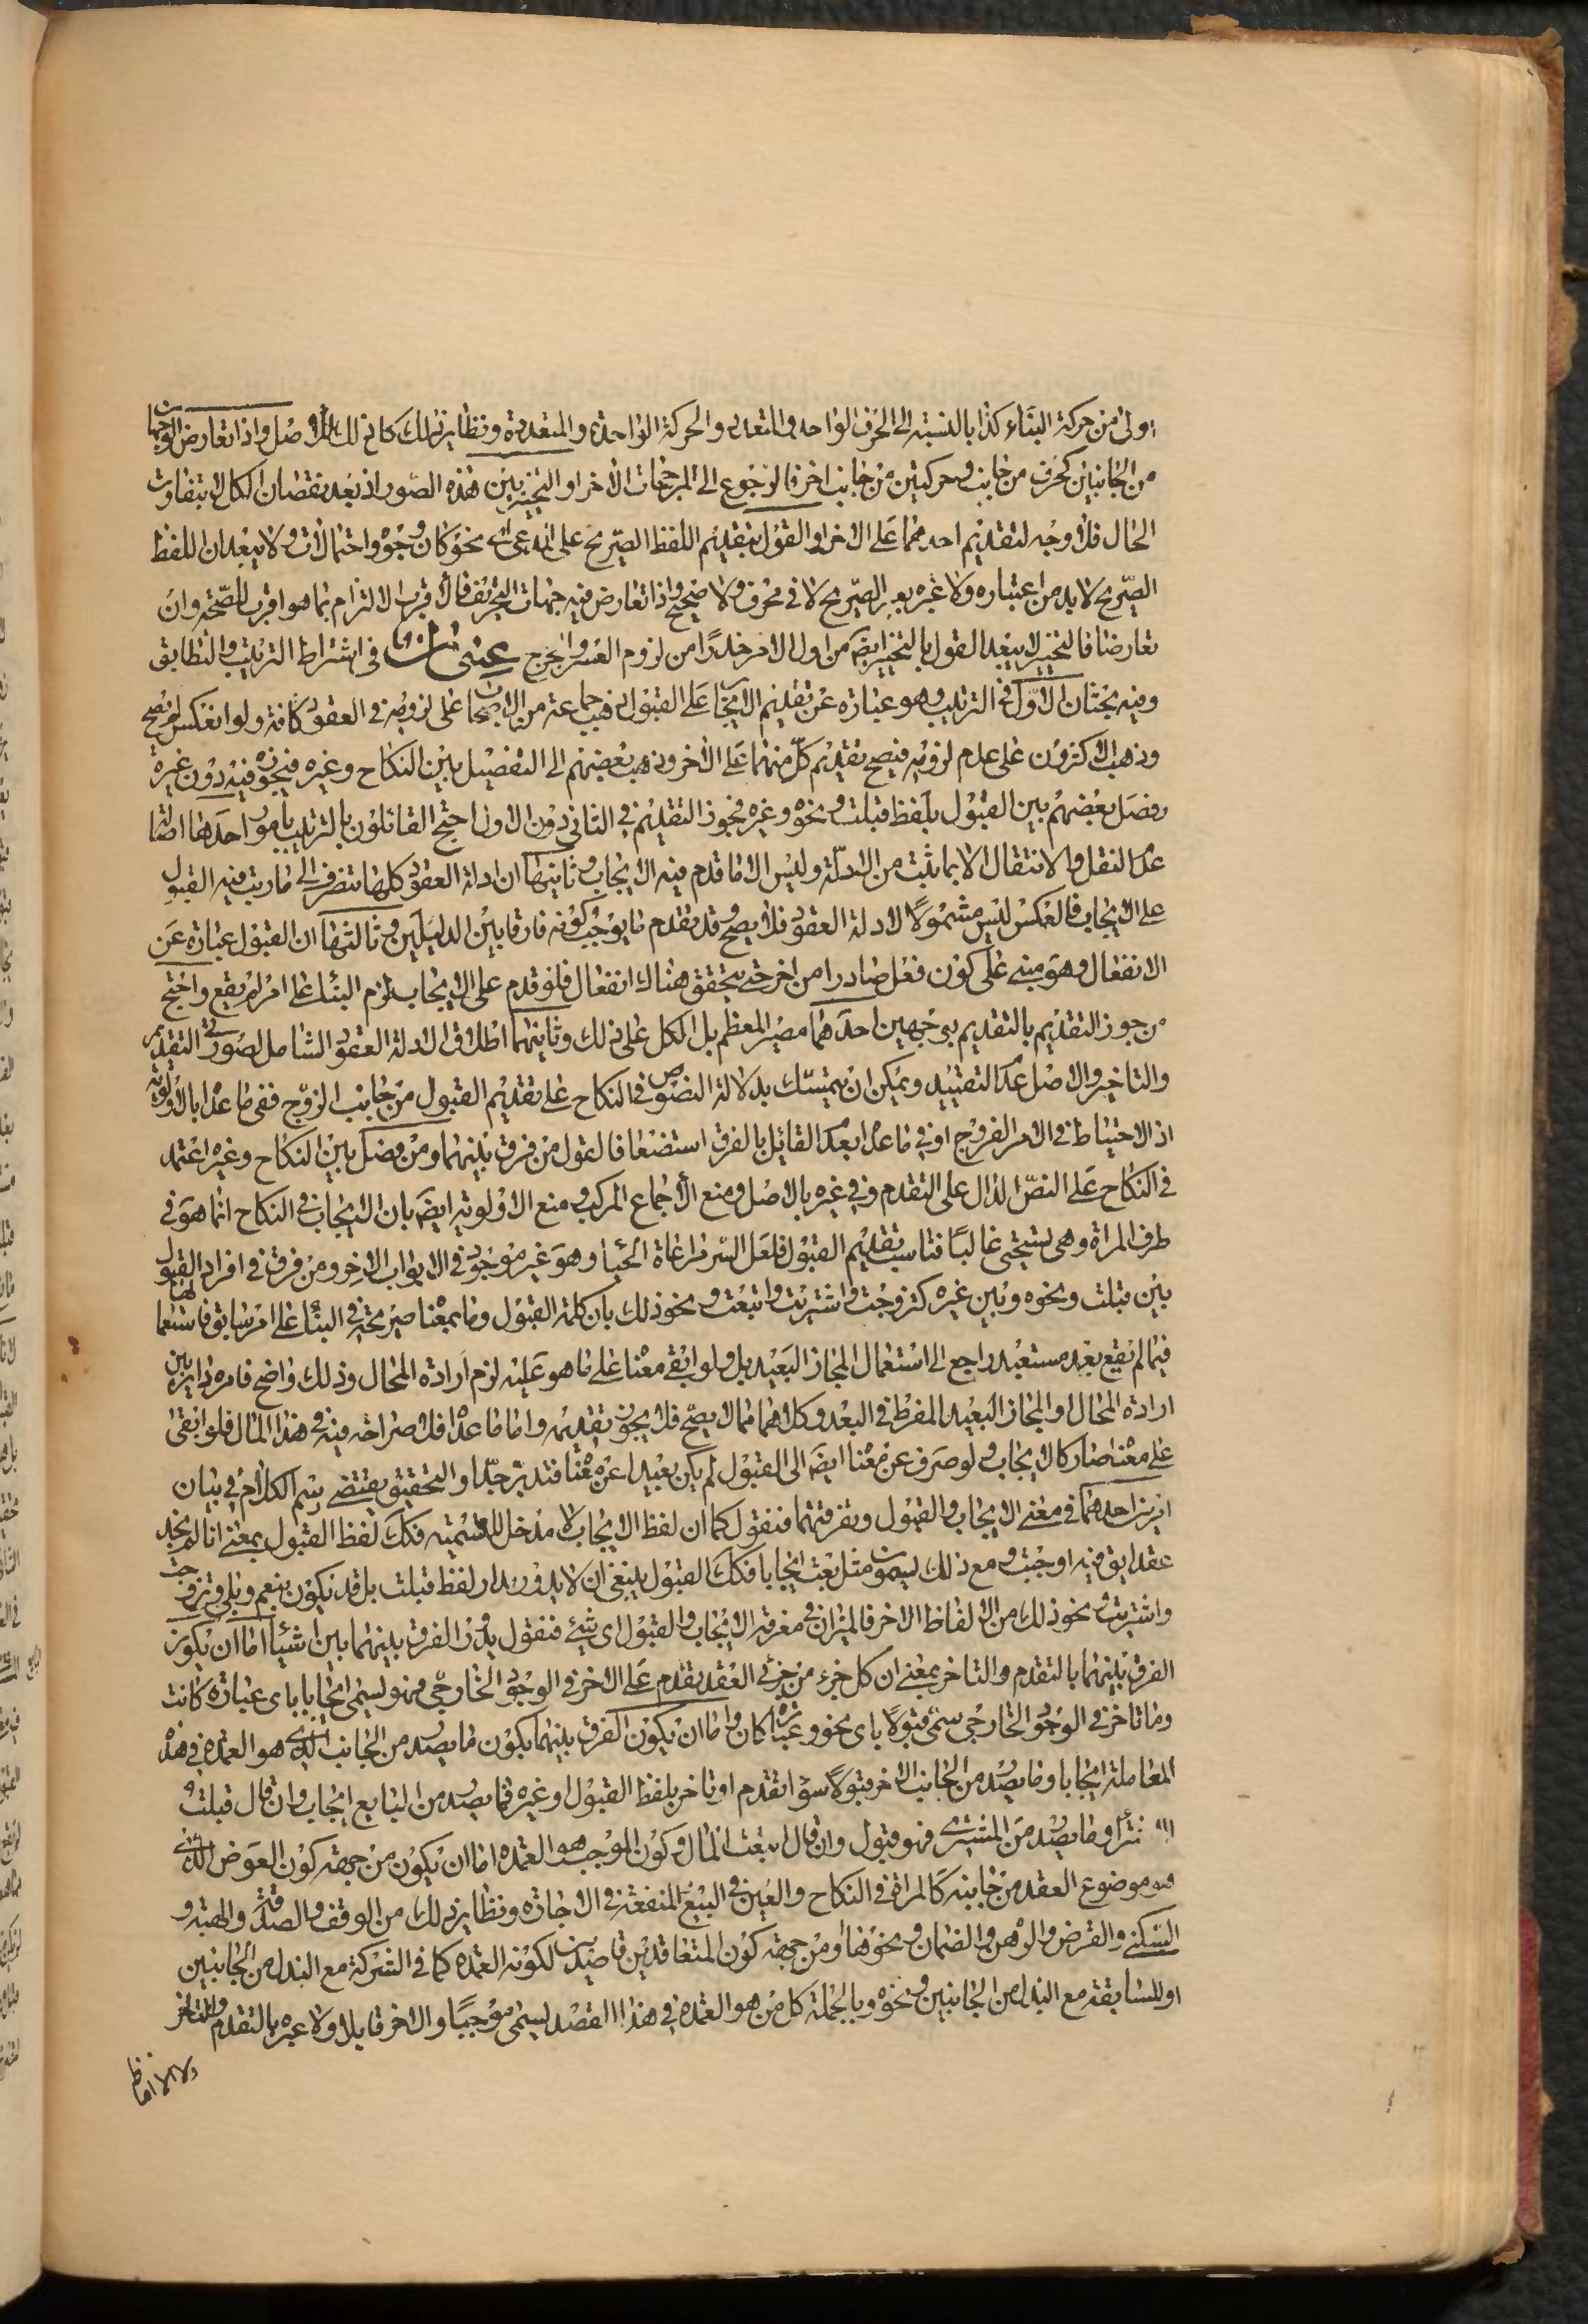 اولى من حركة البناء كذا بالنسبة الى الحرف الواحد والمتعدد والحركة الواحدة والمتعددة ونظاير ذلك كل ذلك للاصل واذا تعارض الوجهان
من الجانبين كحرف من جانب وحركتين من جانب اخر فالرجوع الى المرجحات الاخر او التخيير بين هذه الصور اذ بعد نقصان الكل لا يتفاوت
الحال فلا وجه لتقديم احدهما على الاخر او القول بتقديم اللفظ الصريح على اى نحو كان وجوه واحتمالات ولا يبعد ان اللفظ
الصريح لا بد من اعتباره ولا عبرة بغير الصريح لا في محرف ولا صحيح واذا تعارض فيه جهات التحريف فالاقرب الالتزام بما هو اقرب للصحة وان
تعارضا فالتخيير لا يبعد القول بالتخيير ايضا من اول الامر حذرا من لزوم العسر والحرج عنوان في اشتراط الترتيب والتطابق
وفيه بحثان الاول في الترتيب وهو عبارة عن تقديم الايجاب على القبول ذهب جماعة من الاصحاب على لزومه في العقود كافة ولو انعكس لم يصح
وذهب الاكثرون على عدم لزومه فيصح تقديم كل منهما على الاخر وذهب بعضهم الى التفصيل بين النكاح وغيره فيجوز فيه دون غيره
وفصل بعضهم بين القبول بلفظ قبلت ونحوه وغيره فجوز التقديم في الثاني دون الاول احتج القائلون بالترتيب بامور احدها اصالة
عدم النقل والانتقال الا بما ثبت من الادلة وليس الا ما قدم فيه الايجاب وثانيها ان ادلة العقود كلها تنصرف الى ما رتب فيه القبول
على الايجاب فالعكس ليس مشمولا لادلة العقود فلا يصح وقد تقدم ما يوجب كونه فارقا بين الدليلين وثالثها ان القبول عبارة عن
الانفعال وهو مبنى على كون فعل صادرا من اخر حتى يتحقق هناك انفعال فلو قدم على الايجاب لزم البناء على امر لم يقع واحتج
من جوز التقديم بالتقديم بوجهين احدهما مصير المعظم بل الكل على ذلك وثانيهما اطلاق ادلة العقود الشامل لصورتي التقديم
والتاخير والاصل عدم التقييد ويمكن ان يتمسك بدلالة النصوص في النكاح على تقديم القبول من جانب الزوج ففى ما عداه بالاولوية
اذ الاحتياط في الامر الفروج او في ما عداه بعدم القائل بالفرق استضعافا لقول من فرق بينهما ومن فصل بين النكاح وغيره اعتمد
في النكاح على النص الدال على التقدم وفي غيره بالاصل ومنع الاجماع المركب ومنع الاولوية ايضا بان الايجاب في النكاح انما هو في
طرف المراة وهي تستحيي غالبا فناسب تقديم القبول فلعل السر مراعاة الحياء وهو غير موجود في الابواب الاخر ومن فرق في افراد القبول
بين قبلت ونحوه وبين غيره كتزوجت واشتريت وابتعت ونحو ذلك بان كلمة القبول وما بمعناه صريحة في البناء على امر سابق فاستعمالها
فيما لم يقع بعد مستبعد راجع الى استعمال المجاز البعيد بل ولو ابقي معناه على ما هو عليه لزم ارادة المحال وذلك واضح فامره داير بين
ارادة المحال او المجاز البعيد المفرط في البعد وكلاهما مما لا يصح فلا يجوز تقديمه واما ما عداه فلا صراحة فيه في هذا المثال فلو ابقى
على معناه صار كالايجاب ولو صرف عن معناه ايضا الى القبول لم يكن بعيدا عن معناه فتدبر جدا والتحقيق يقتضى رسم الكلام في بيان
امرين احدهما في معنى الايجاب والقبول وتفرقتهما فنقول كما ان لفظ الايجاب لا مدخل له للتسمية فكذا لفظ القبول بمعنى انا لم نجد
عقدا يق فيه اوجبت ومع ذلك يسمون مثل بعت ايجابا فكذا القبول ينبغى ان لا يدور مدار لفظ قبلت بل قد يكون بنعم وبلى وتزوجت
واشتريت ونحو ذلك من الالفاظ الاخر فالميزان في معرفة الايجاب والقبول اى شيئ فنقول يدور الفرق بينهما بين اشياء اما ان يكون
الفرق بينهما بالتقدم والتاخر بمعنى ان كل جزء من جزئى العقد تقدم على الاخر في الوجود الخارجي فهو يسمى ايجابا باى عبارة كانت
وما تاخر في الوجود الخارجي سمى قبولا باى نحو وعبارة كان واما ان يكون الفرق بينهما بكون ما يصدر من الجانب الذي هو العمدة في هذه
المعاملة ايجابا وما يصدر من الجانب الاخر قبولا سواء تقدم او تاخر بلفظ القبول او غيره فما يصدر من البايع ايجاب وان قال قبلت
وما يصدر من المشترى فهو قبول وان قال ابتعت المال وكون الموجب هو العمدة اما ان يكون من جهة كون العوض الذى
هو موضوع العقد من جانبه كالمراة في النكاح والعين في البيع المنفعة في الاجارة ونظاير ذلك من الوقف والصدقة والهبة و
السكنى والقرض والرهن والضمان ونحوها او من جهة كون المتعاقدين قاصدين لكونه العمدة كما في الشركة مع البذل من الجانبين
او للسابقة مع البذل من الجانبين ونحوه وبالجملة كل من هو العمدة في هذا القصد يسمى موجبا والاخر قابلا ولا عبرة بالتقدم والتاخر
ولا الالفاظ